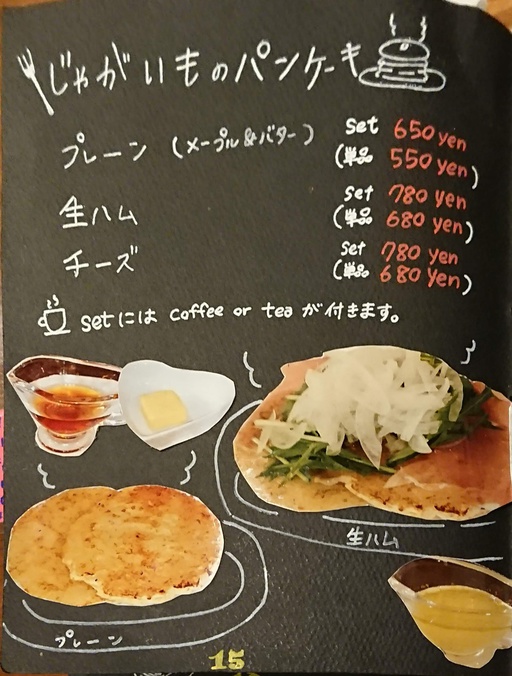 じゃがいものパンケーキ
プレーン (メープル&バター) set 650 yen
(単品 550 yen)
生ハム set 780 yen
(単品 680 yen)
チーズ set 780 yen
(単品 680 yen)
setには coffee or tea が付きます。
生ハム
プレーン
15